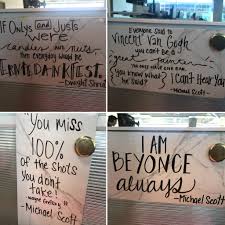 IF Onlys and Justs
were
candies and nuts
then everyday would be
ERNTEDANKFEST.
-Dwight Shrute
Everyone said to
Vincent Van Gogh
you can't be a
great painter
you only have one ear
you know what
he said?
I can't Hear You
-Michael Scott
"You miss
100%
of the shots
you don't
take"
-wayne Gretzky"
-Michael Scott
I AM
BEYONCE
always
-Michael Scott